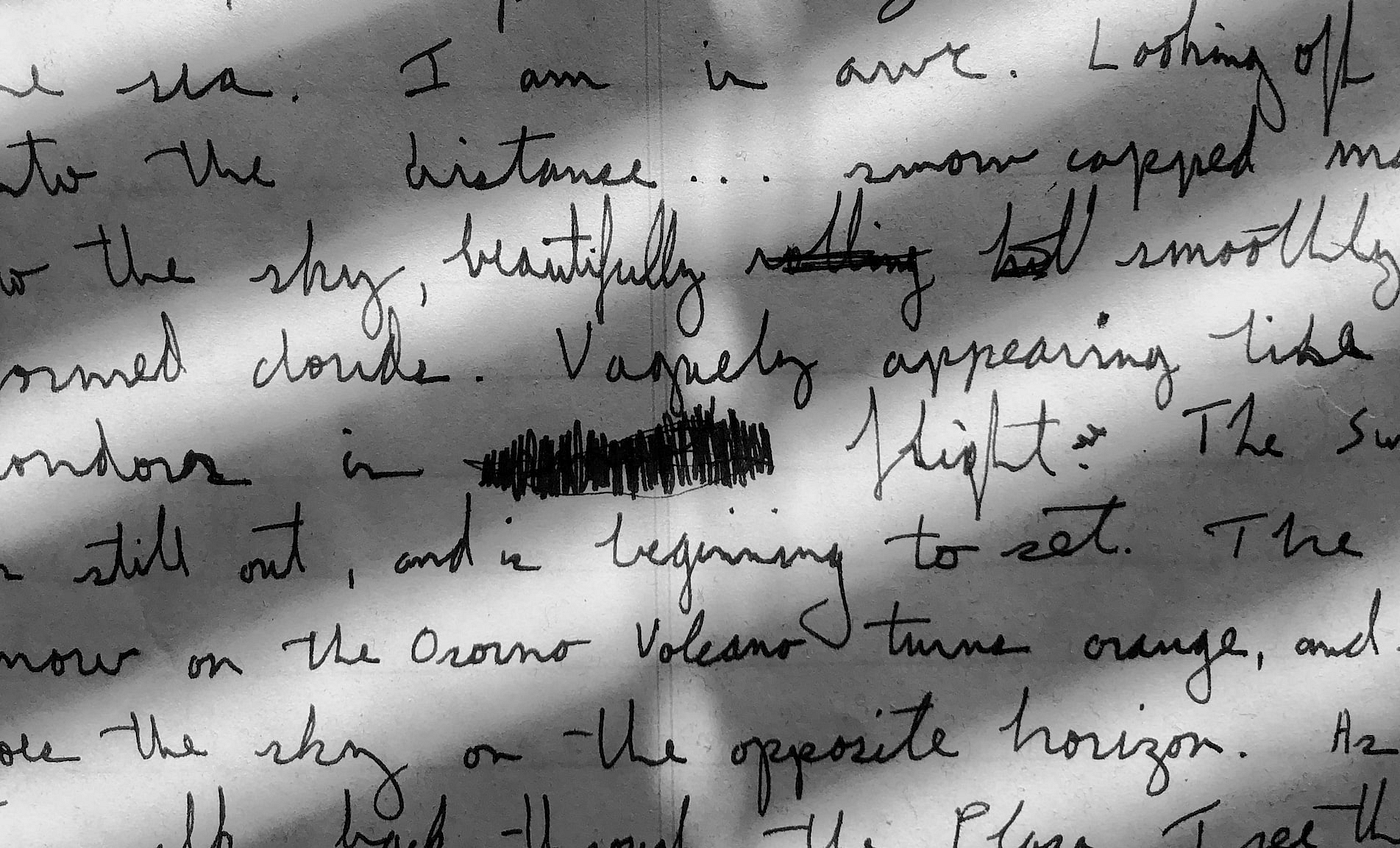 sea. I am in awe. Looking off
into the distance... snow capped
the sky, beautifully rolling but smoothly
formed clouds. Vaguely appearing like
condors in flight. The Su
n still out, and is beginning to set. The
snow on the Osorno Volcano turns orange, and
does the sky on the opposite horizon. As
back the Plaza I see th